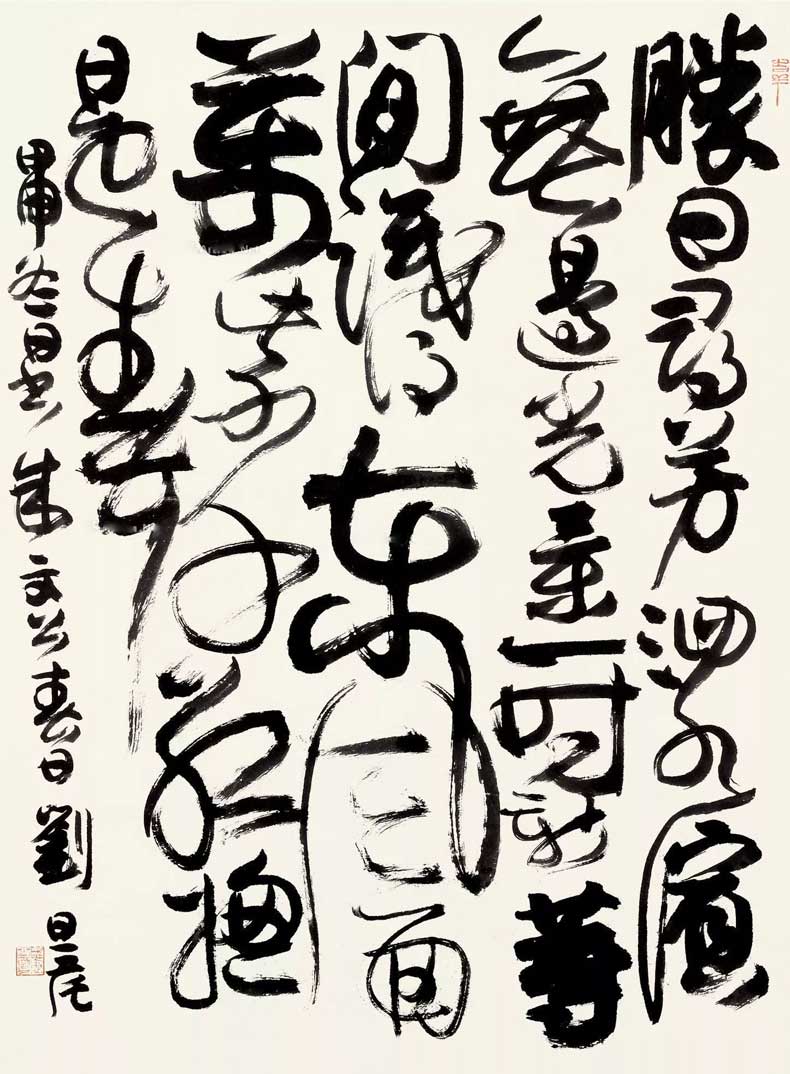 勝日尋芳泗水濱
無邊光景一時新等
間識得東風面
萬紫千紅總
是春
甲申冬日書朱文公春日劉